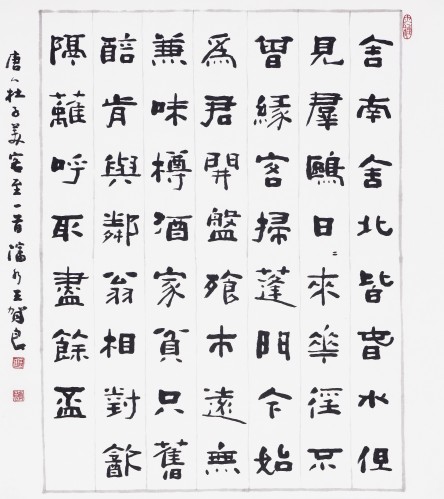 舍南舍北皆春水但
見羣鷗日〻來華徑不
曾緣客掃蓬門今始
爲君開盤飧市遠無
兼味樽酒家貧只舊
醅肯與鄰翁相對飲
隔蘺呼取盡餘盃
唐人杜子美客至一首王賀良